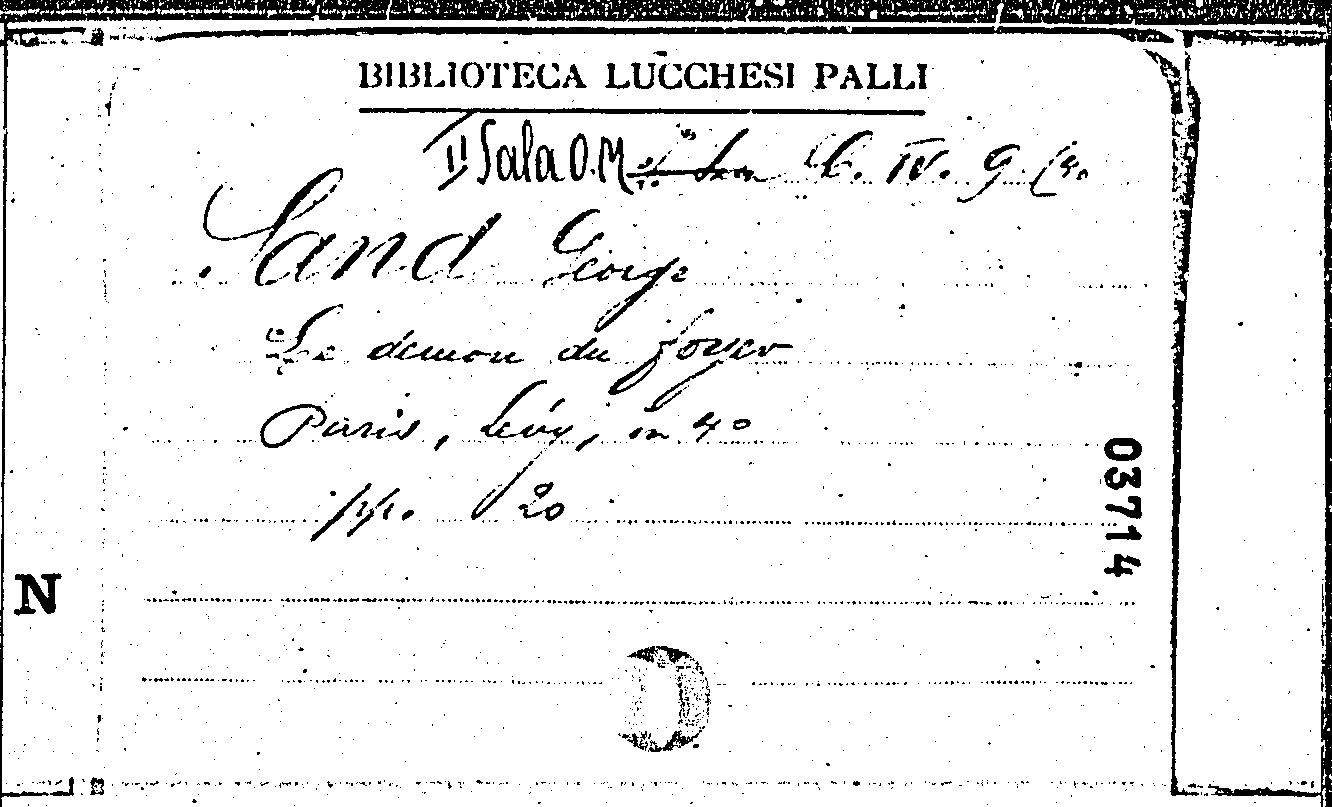 BIBLIOTECA LUCCHESI PALLI
II Sala O.M. IV. 9
Sand George
Le demon du foyer
Paris, Lévy, in 4º
pp. 20
03714
N